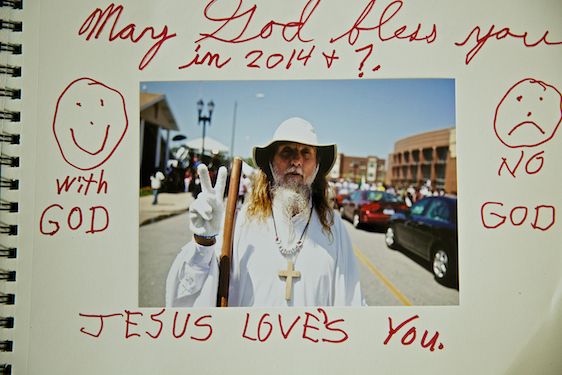 May God bless you
in 2014 + ?.
with
GOD
NO
GOD
JESUS LOVE'S You.